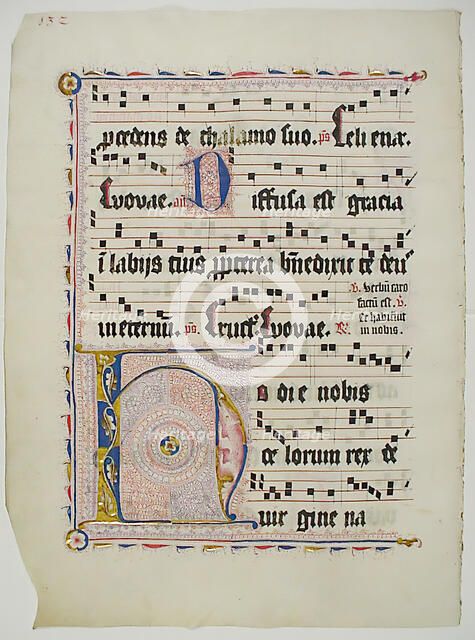 132
pcedens de thalamo suo. ps Celi enar.
Evovae. añ Diffusa est gracia
ĩ labijs tuis ppterea bñedixit te deus
in eternũ. ps Eruct. Evovae. R.
V. verbũ caro
factũ est. V.
Et habitavit
in nobis.
Hodie nobis
ce lorum rex de
vir gine na